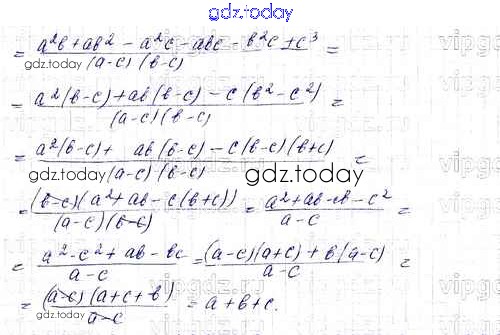 gdz.today
= (a²b + ab² - a²c - abc - b²c + c³) / ((a-c)(b-c)) =
gdz.today
= (a²(b-c) + ab(b-c) - c(b²-c²)) / ((a-c)(b-c)) =
= (a²(b-c) + ab(b-c) - c(b-c)(b+c)) / ((a-c)(b-c)) =
gdz.today gdz.today
= ((b-c)(a² + ab - c(b+c))) / ((a-c)(b-c)) = (a² + ab - cb - c²) / (a-c) =
= (a² - c² + ab - bc) / (a-c) = ((a-c)(a+c) + b(a-c)) / (a-c) =
= ((a-c)(a+c+b)) / (a-c) = a + b + c.
gdz.today